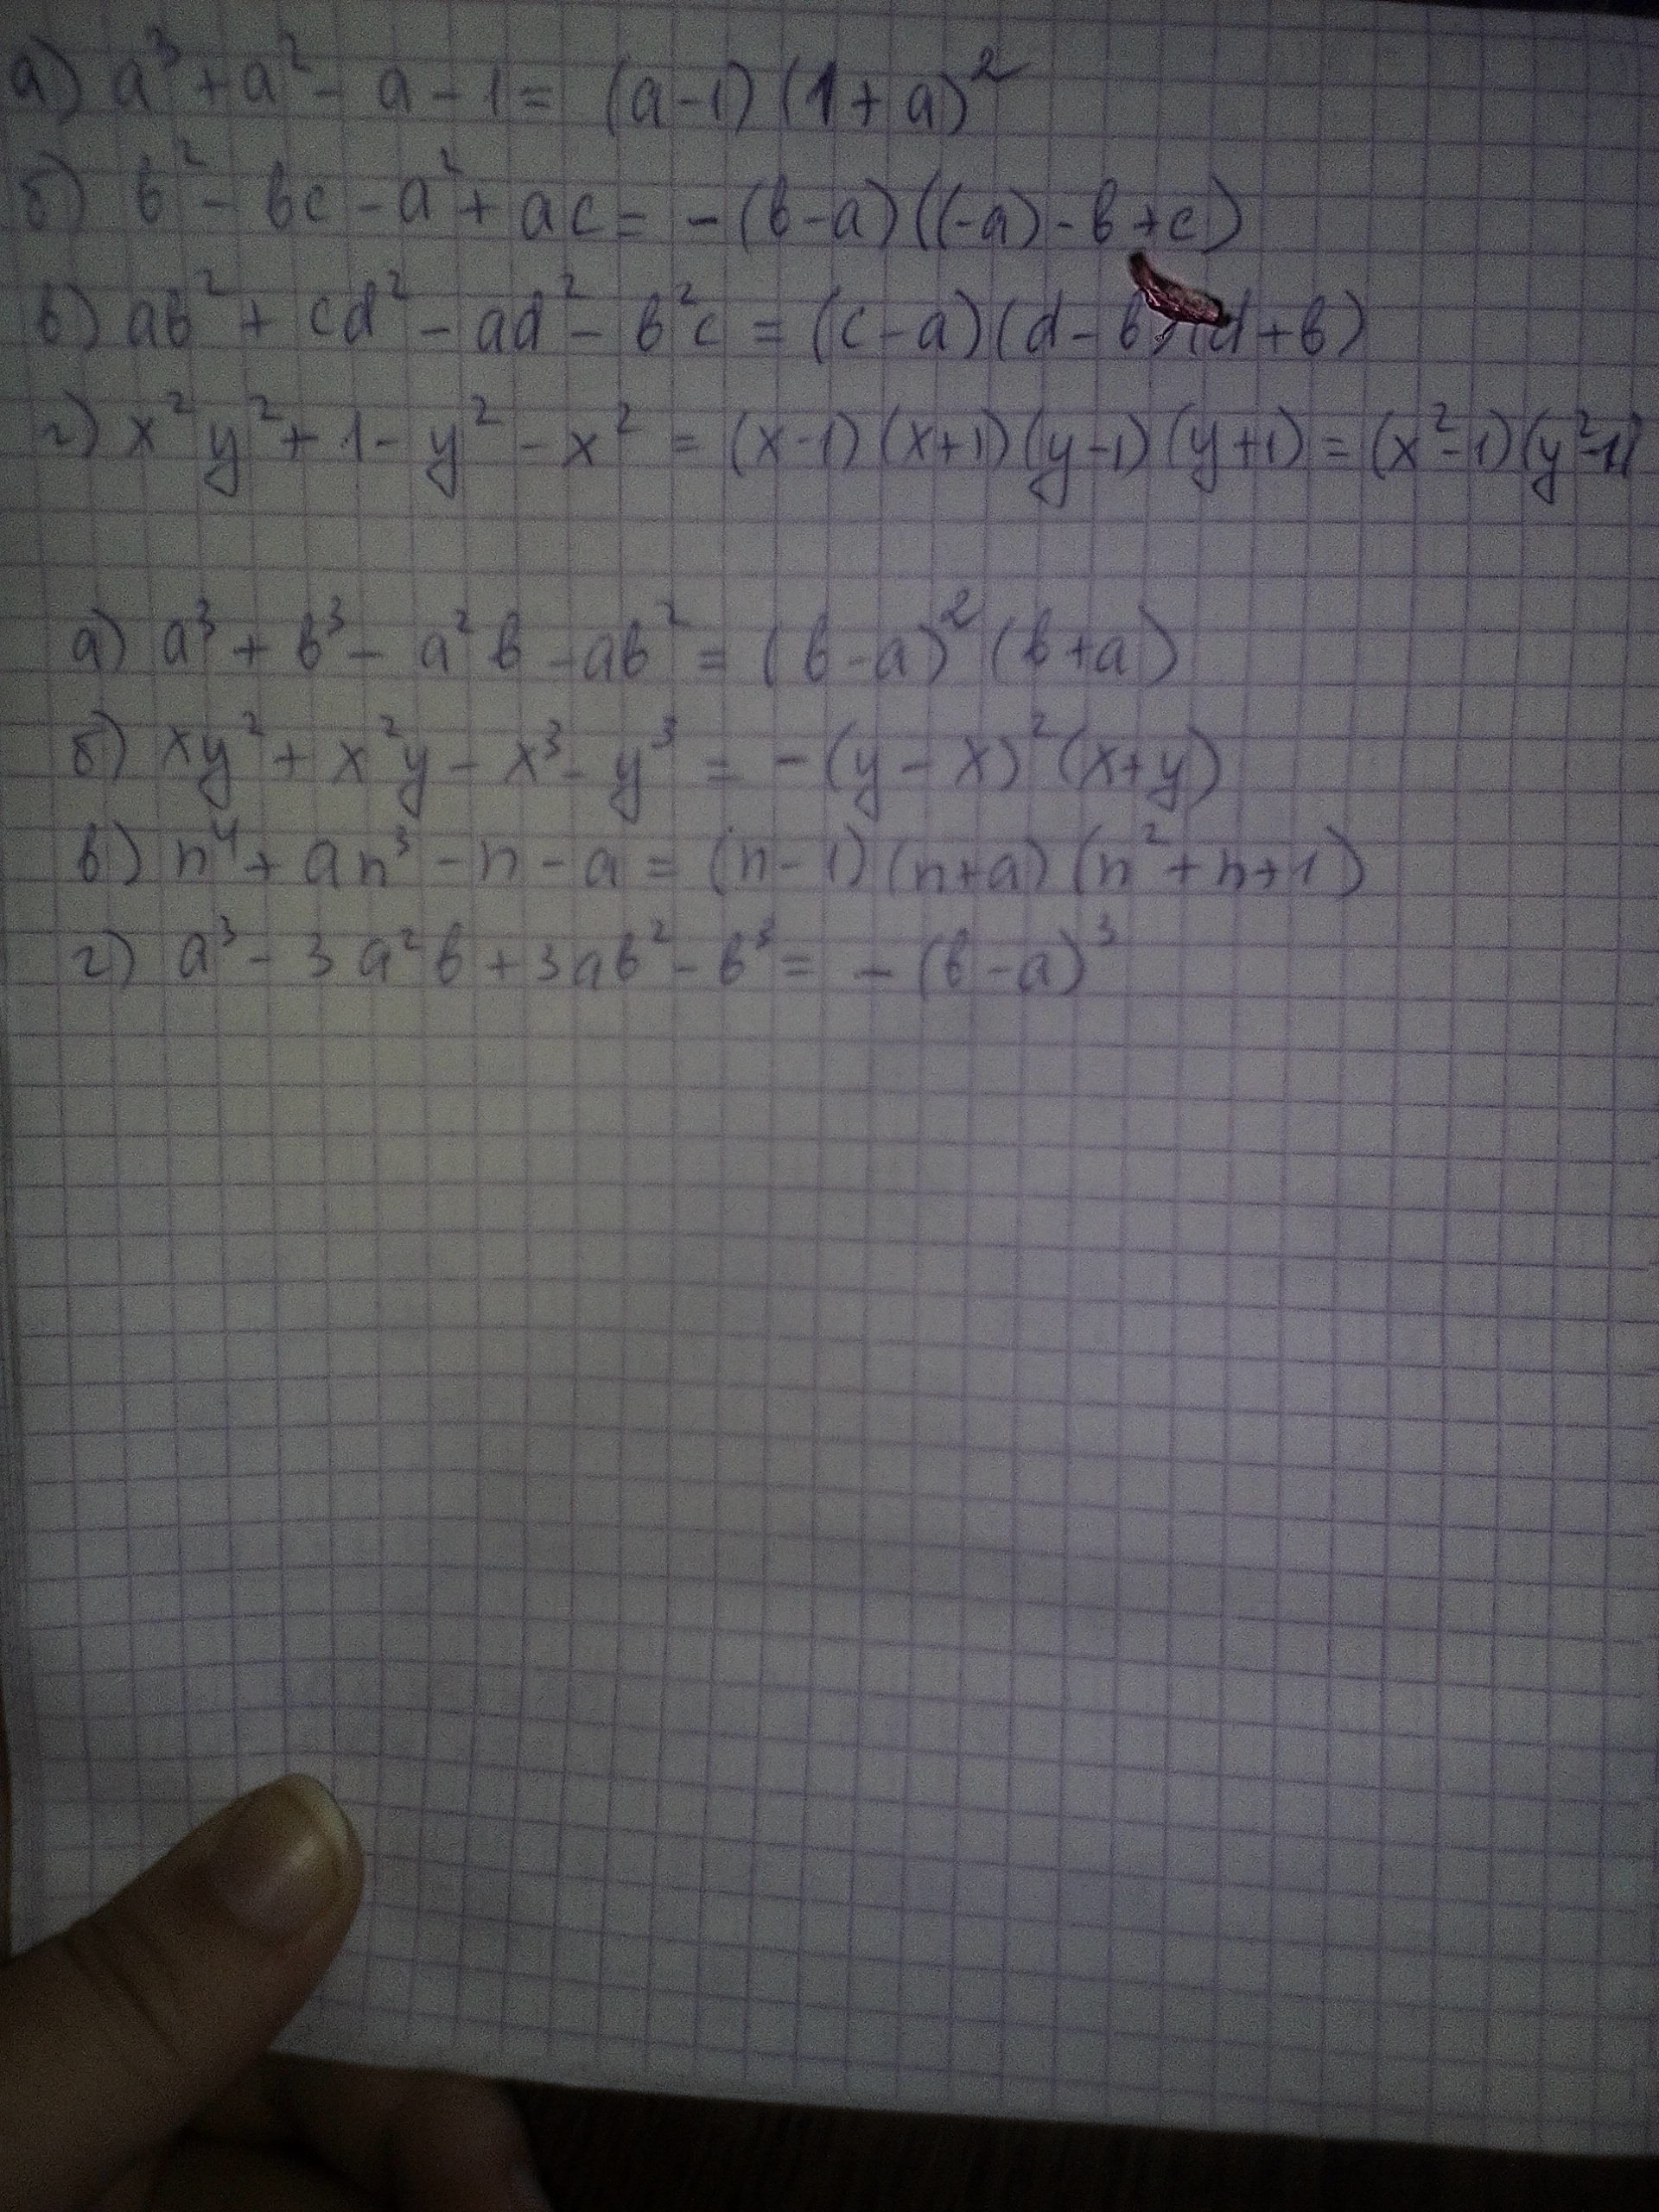 а) a³ + a² - a - 1 = (a-1)(1+a)²
б) b² - bc - a² + ac = -(b-a)((-a)-b+c)
в) ab² + cd² - ad² - b²c = (c-a)(d-b)(d+b)
г) x²y² + 1 - y² - x² = (x-1)(x+1)(y-1)(y+1) = (x²-1)(y²-1)
а) a³ + b³ - a²b - ab² = (b-a)²(b+a)
б) xy² + x²y - x³ - y³ = -(y-x)²(x+y)
в) n⁴ + an³ - n - a = (n-1)(n+a)(n²+n+1)
г) a³ - 3a²b + 3ab² - b³ = -(b-a)³